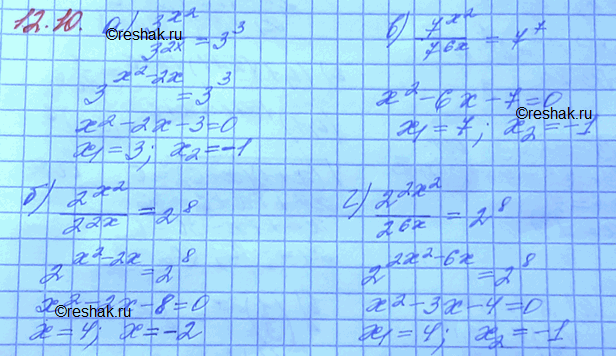 12.10. а) 3^{x^2}/3^{2x} = 3^3
3^{x^2-2x} = 3^3
x^2-2x-3=0
x_1=3; x_2=-1
б) 2^{x^2}/2^{2x} = 2^8
2^{x^2-2x} = 2^8
x^2-2x-8=0
x=4; x=-2
в) 7^{x^2}/7^{6x} = 7^7
x^2-6x-7=0
x_1=7; x_2=-1
г) 2^{2x^2}/2^{6x} = 2^8
2^{2x^2-6x} = 2^8
x^2-3x-4=0
x_1=4; x_2=-1
©reshak.ru
©reshak.ru
©reshak.ru
©reshak.ru
©reshak.ru
©reshak.ru